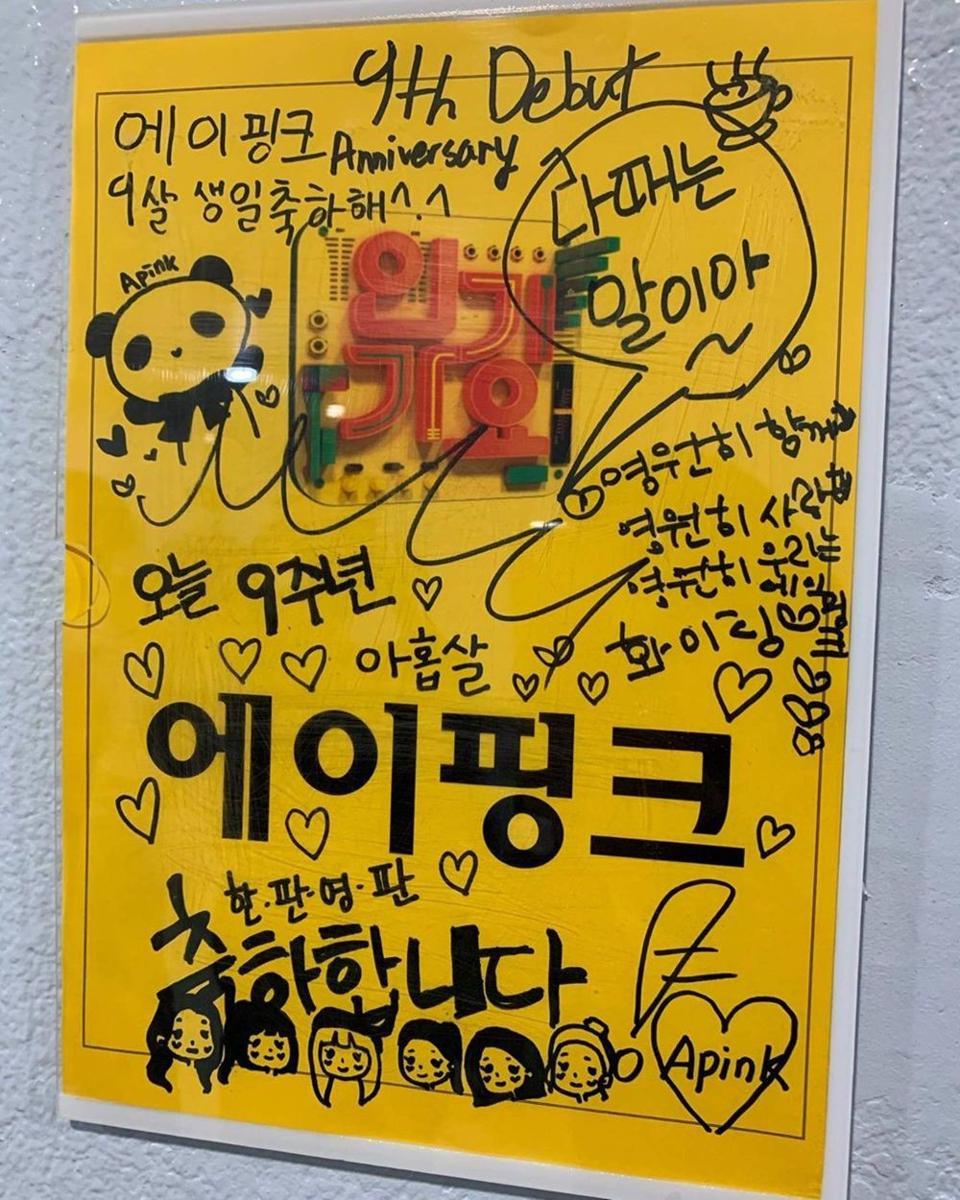 9th Debut
Anniversary
에이핑크
9살 생일축하해^.^
나때는
말이야
~
Apink
완전
영원히 함께
영원히 사랑해
영원히 우리는
에이핑크
화이팅
오늘 9주년
아홉살
에이핑크
한·판·영·판
축하합니다
Apink